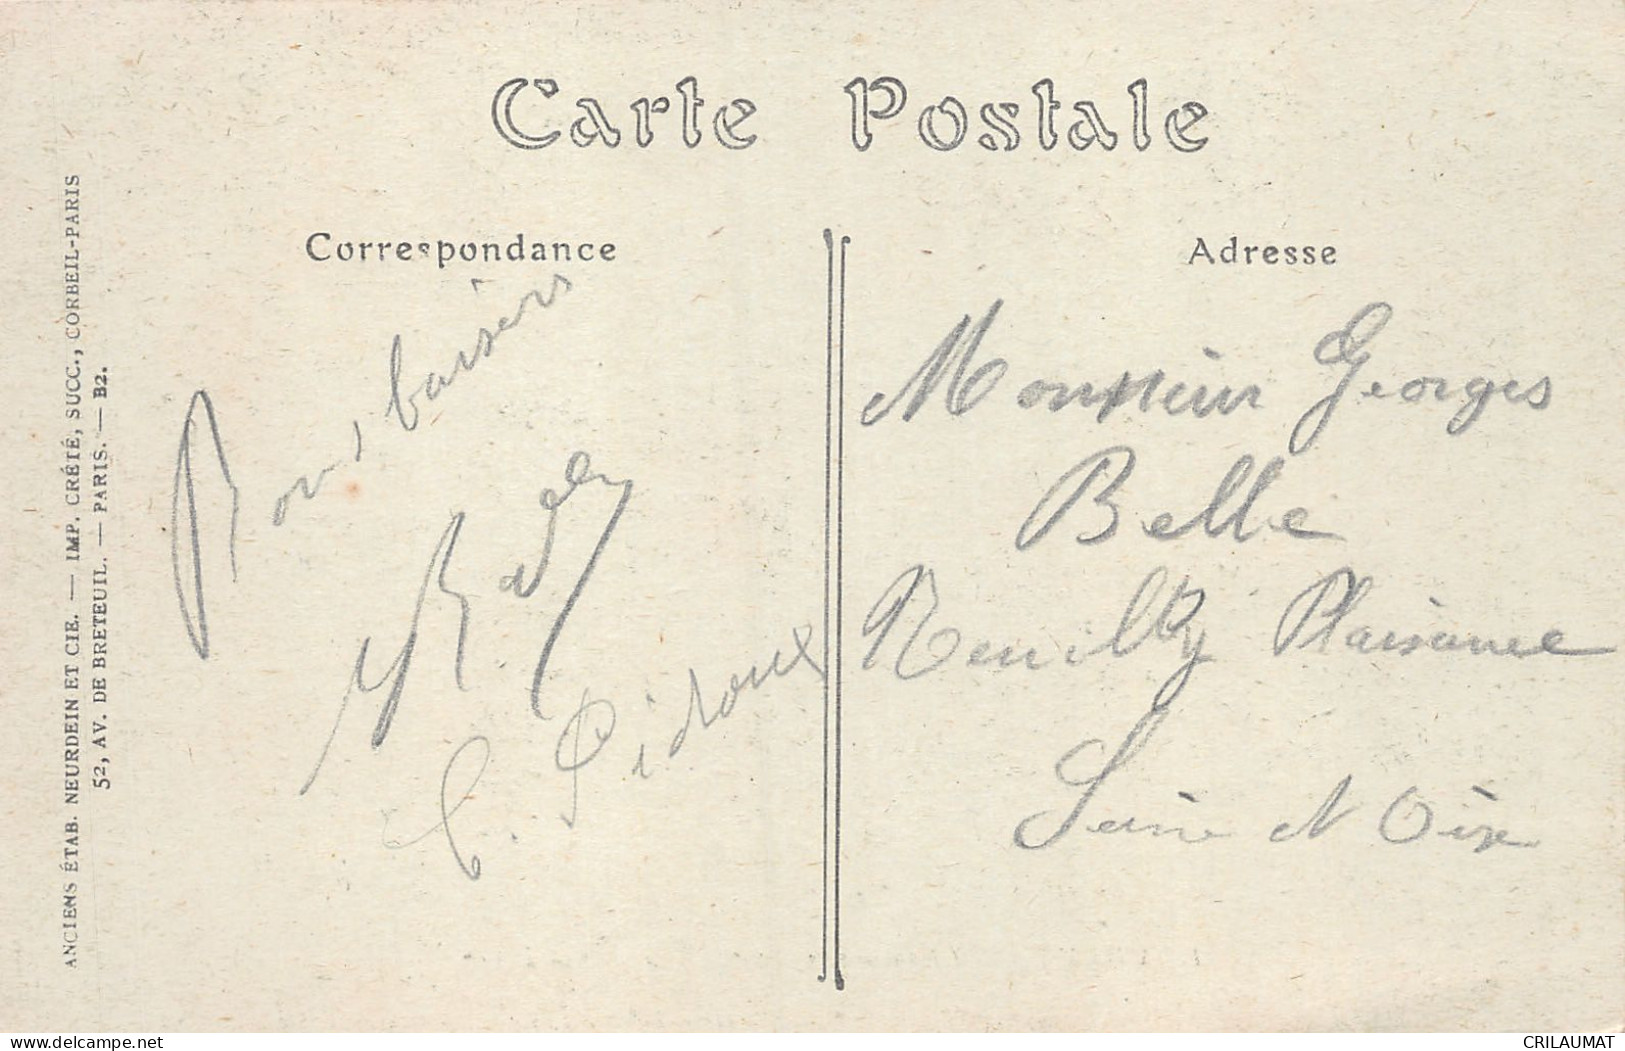 Carte Postale
Correspondance
Adresse
Bons baisers
C. Pidoux
Monsieur Georges
Belle
Neuilly Plaisance
Seine et Oise
ANCIENS ÉTAB. NEURDEIN ET CIE. — IMP. CRÉTÉ, SUCC., CORBEIL-PARIS
52, AV. DE BRETEUIL. — PARIS. — B2.
delcampe.net
CRILAUMAT